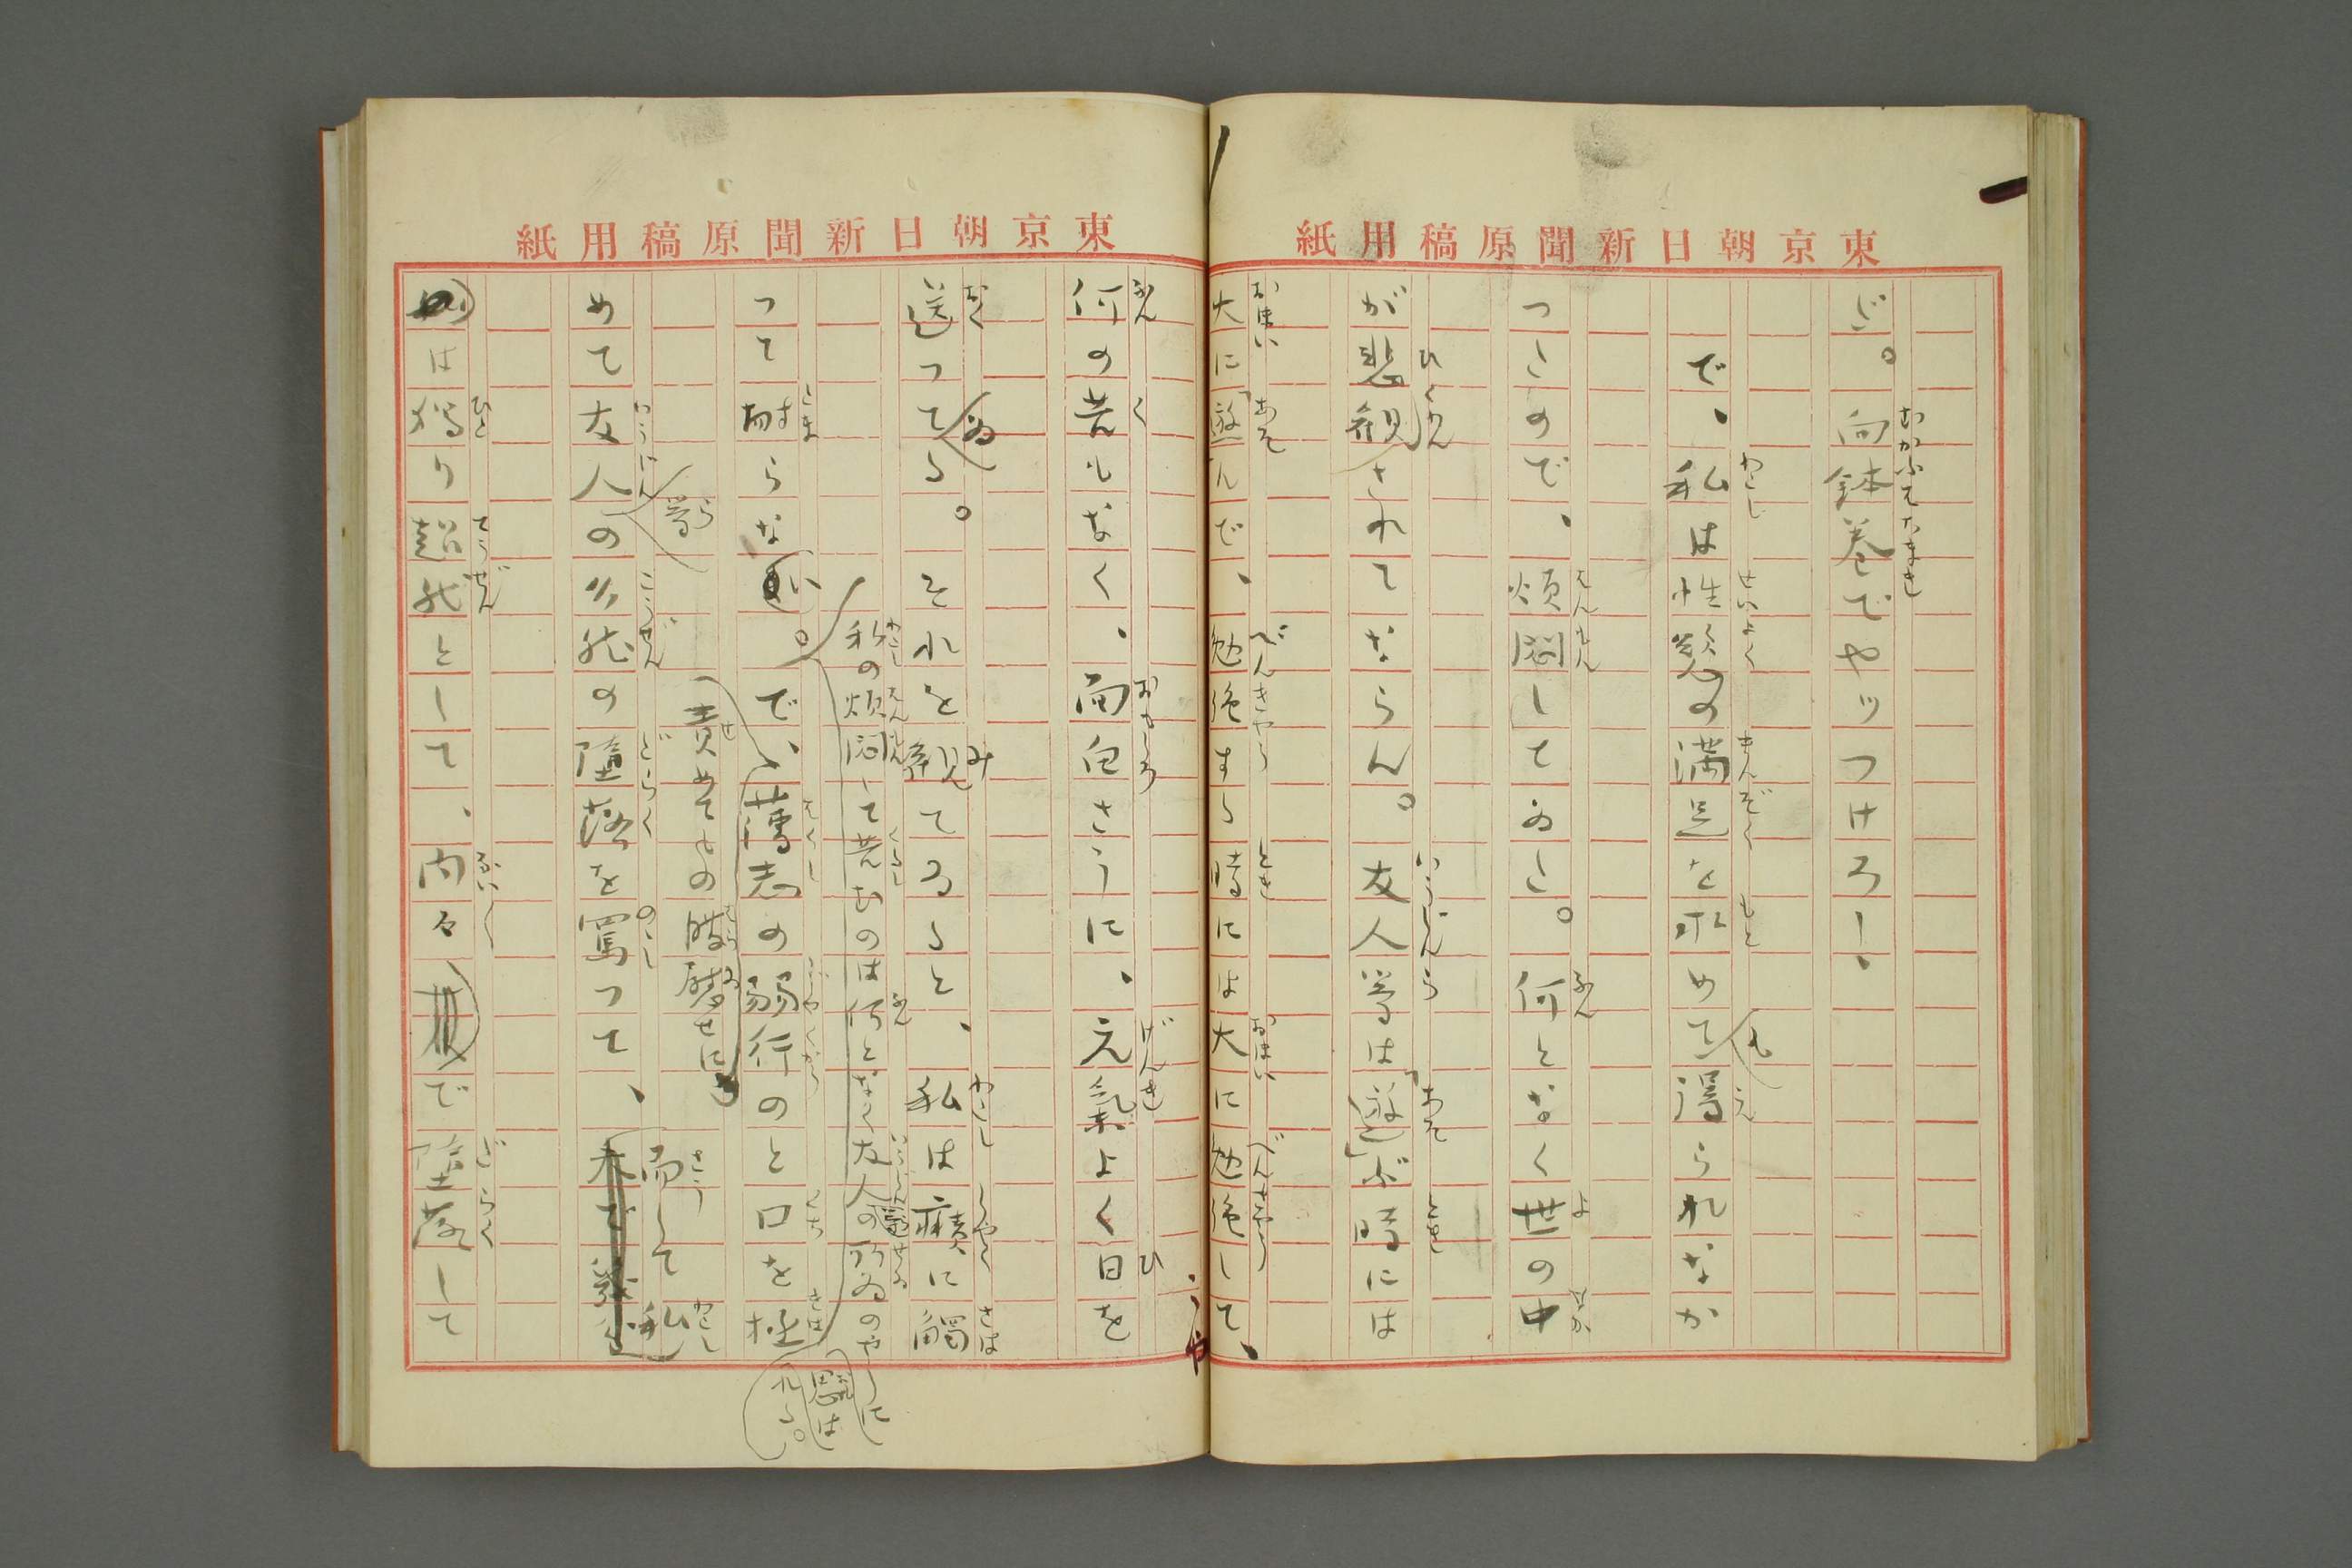 東京朝日新聞原稿用紙
だ。向鉢巻でヤッつけろ!
で、私は性慾の満足を求めても得られなか
つたので、煩悶してゐた。何となく世の中
が悲観されてならん。友人等は「遊」ぶ時には
大に「遊」んで、勉強する時には大に勉強して、
東京朝日新聞原稿用紙
何の苦もなく、面白さうに、元氣よく日を
送つてゐる。それを観てゐると、私は癪に觸
つて耐らない。
私の煩悶して苦むのは何となく友人の所為のやうに
思は
れる。
で、薄志の弱行のと口を極
めて友人等の公然の堕落を罵つて、而して私
責めてもの
は獨り超然として、内々で堕落して